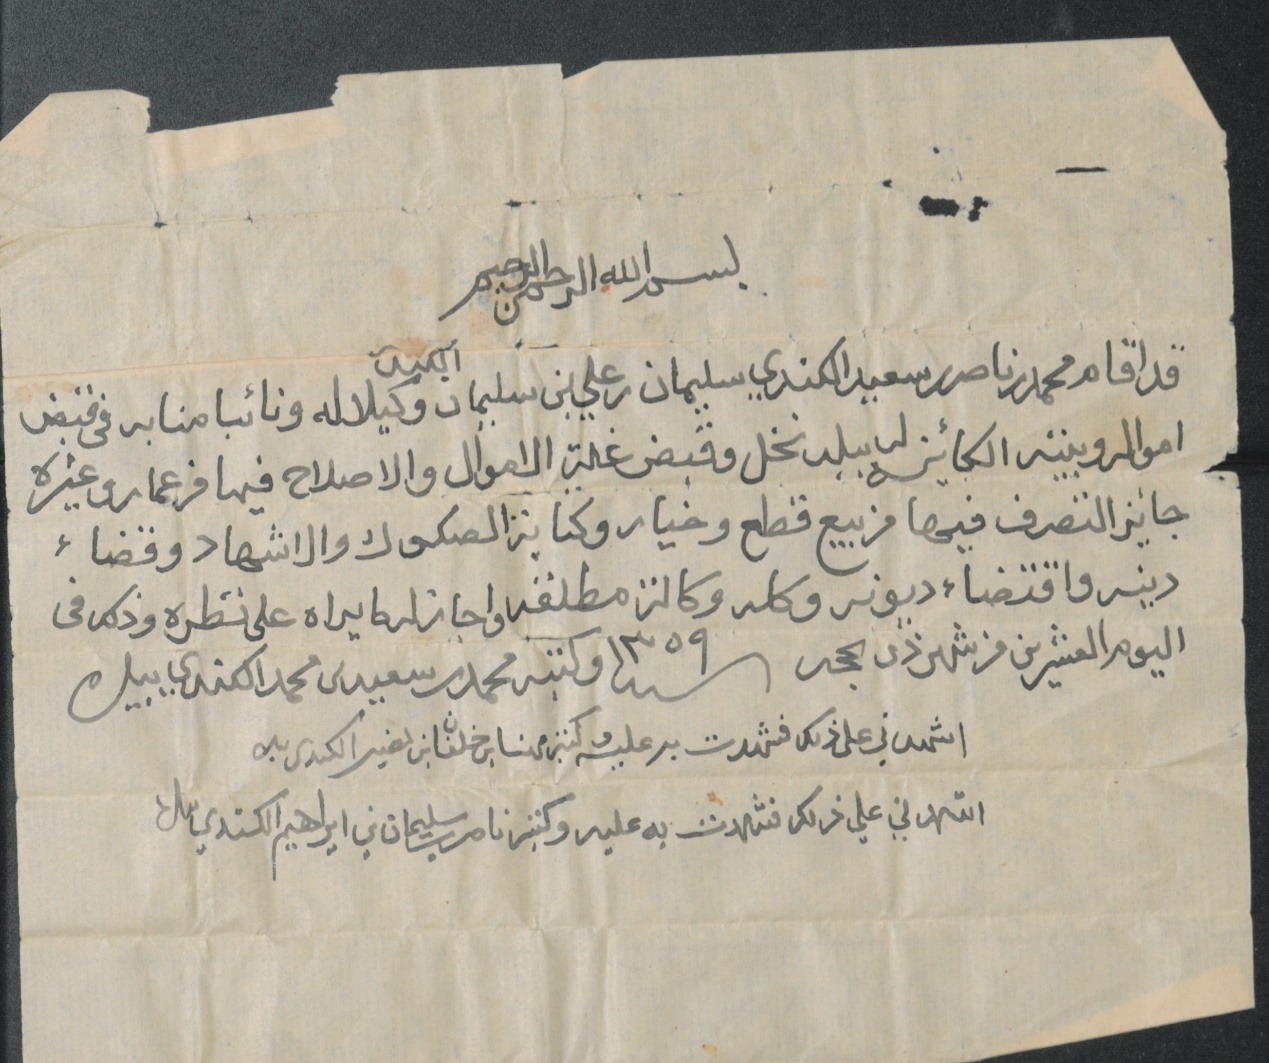 بسم الله الرحمن الرحيم
الكندي
قد اقام محمد بن ناصر بن سعيد الكندي سليمان بن علي بن سليمان وكيلا له ونائبا منابه في قبض
امواله وبيته الكائنة له ببلد نخل وقبض غلة الاموال والاصلاح فيها من عمار وغيره
جايز التصرف فيها من بيع قطع وخيار وكتابة الصكوك والاشهاد وقضاء
دينه واقتضاء ديونه وكله وكالة مطلقة واجاز له ما يراه على نظره وذلك في
اليوم العشرين من شهر ذي سنة ١٣٥٩ وكتبه محمد بن سعيد بن محمد الكندي بيده
اشهدني على ذلك فشهدت به عليه كتبه خلفان بن الكندي بيده
اشهدني على ذلك فشهدت به عليه وكتبه ناصر بن سليمان بن ابراهيم الكندي بيده